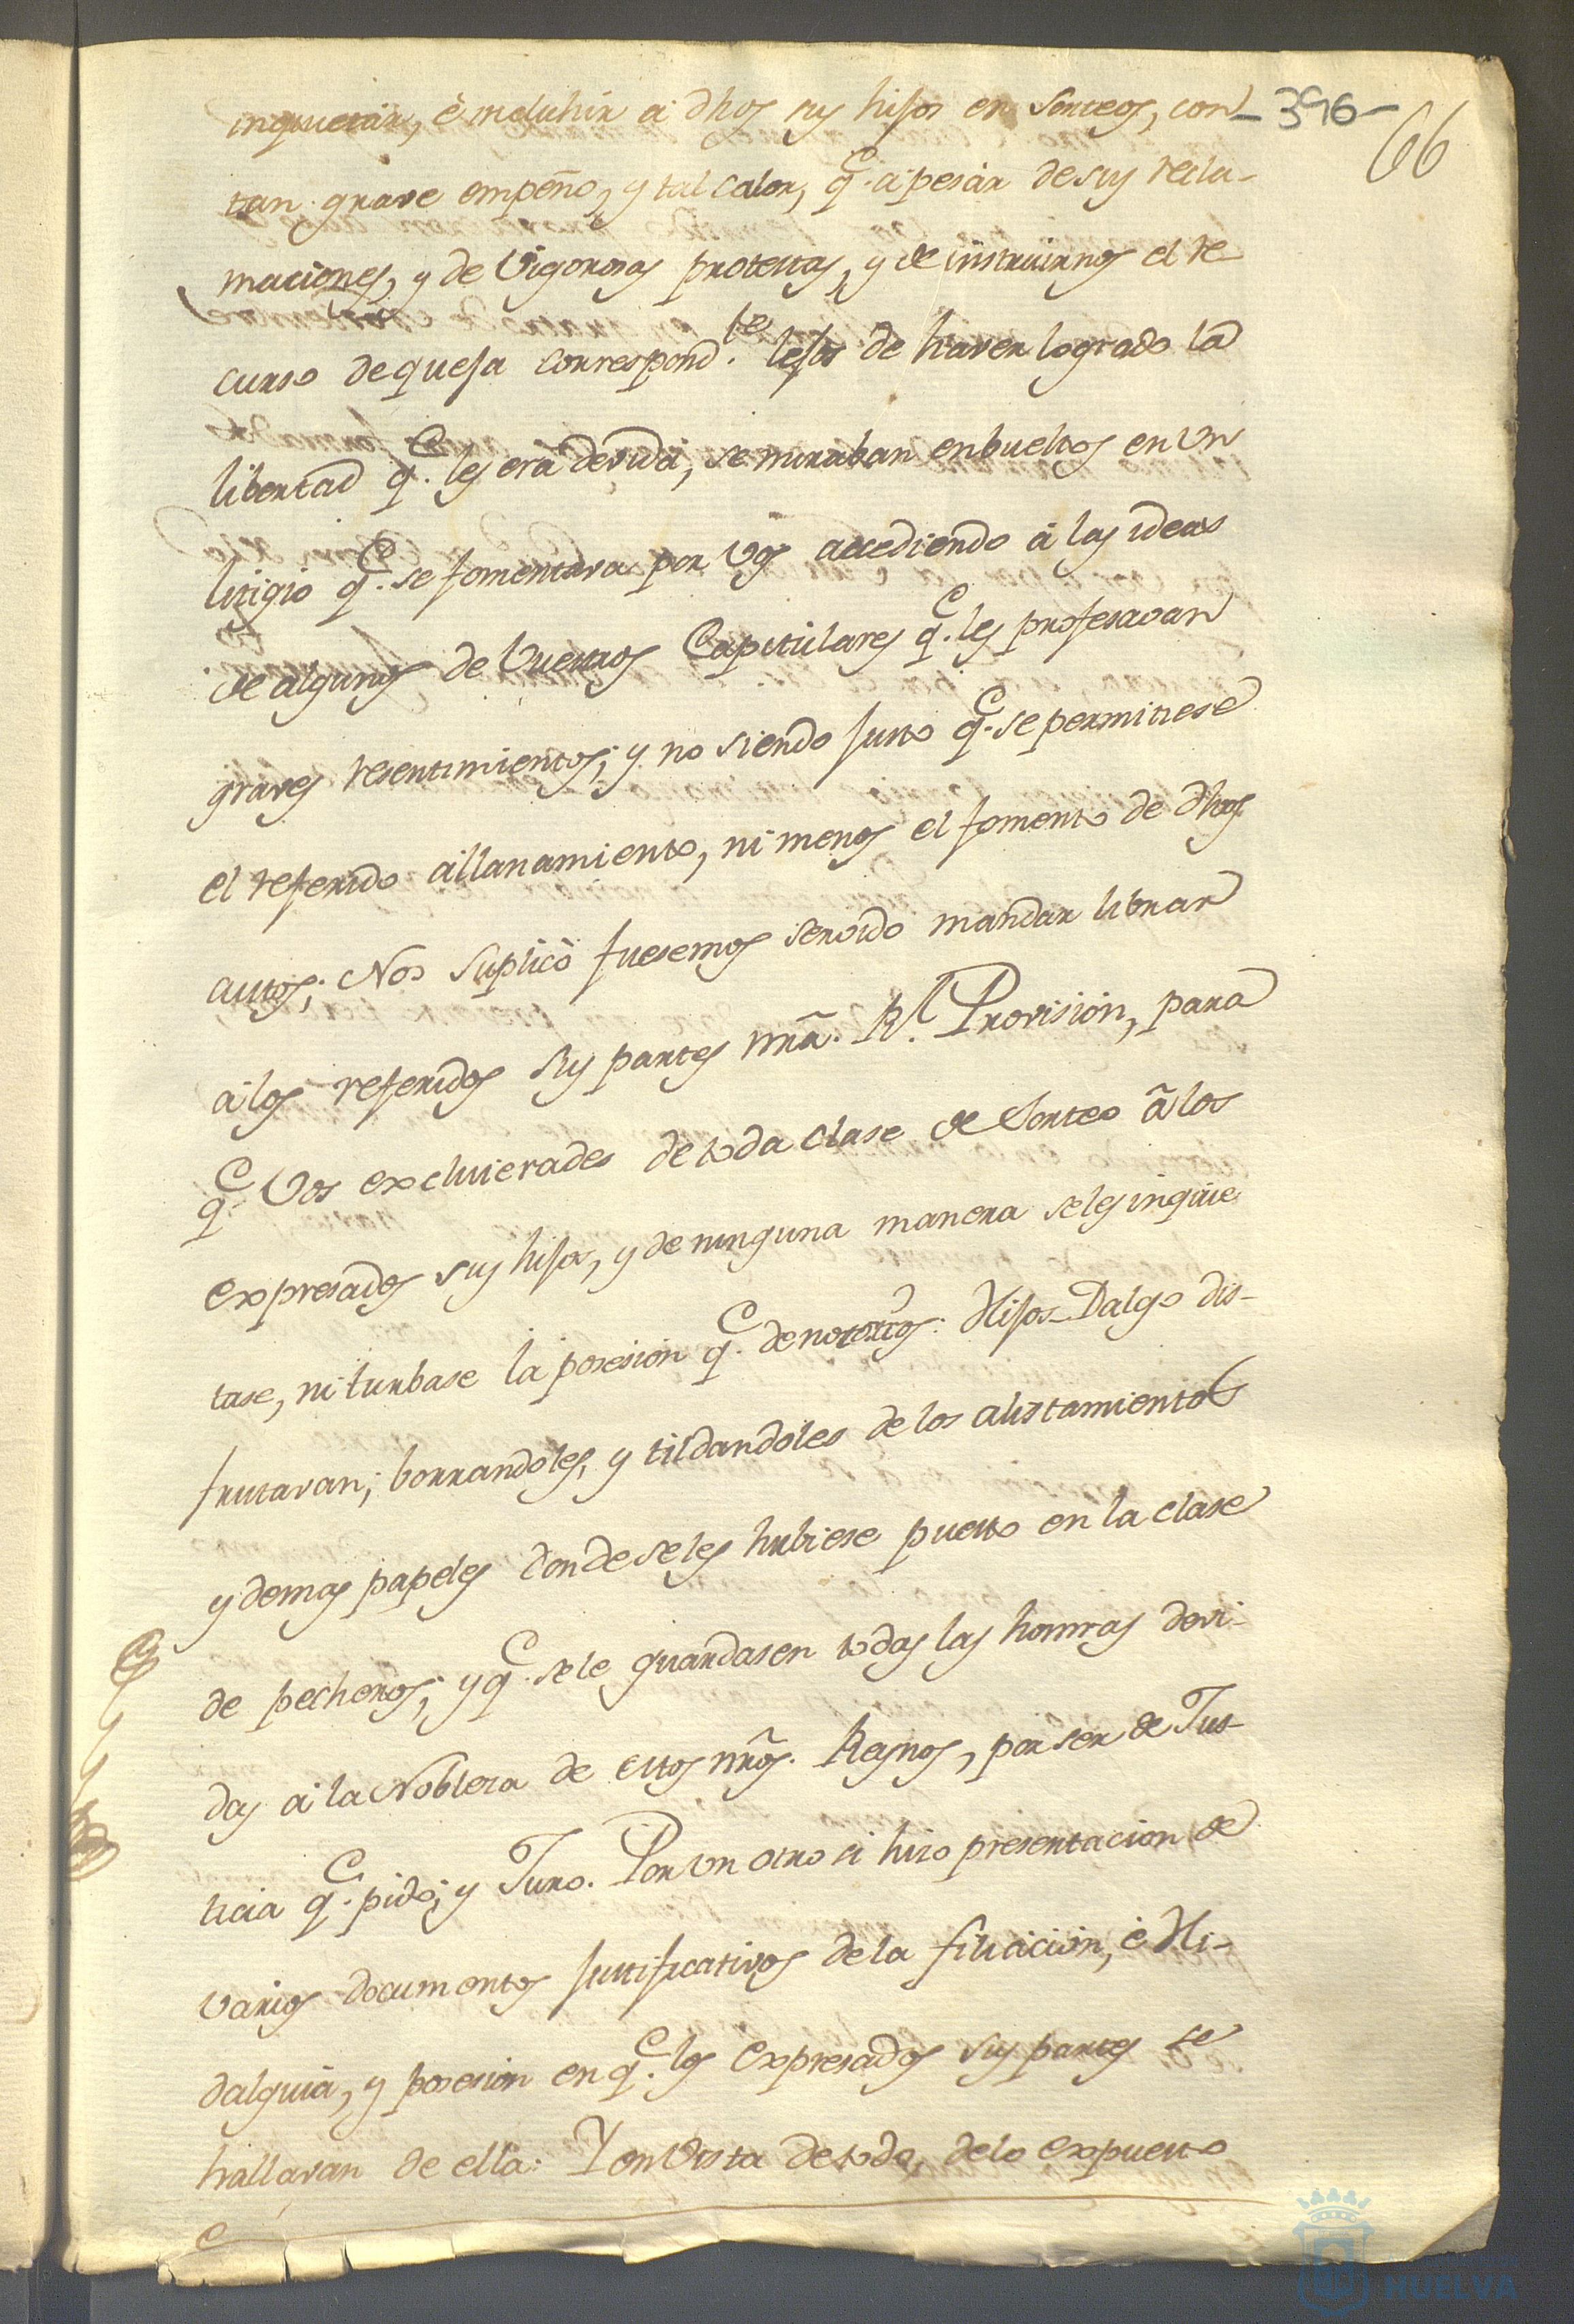 inquietar, è incluhir à dhos sus hijos en Sorteos, con
- 396 -
66
tan grave empeño, y tal calor, q.e à pesar de sus recla-
maciones, y de Vigorosas protestas, y de instruirnos el re
curso de queja correspond.te lejos de haver logrado la
libertad q.e les era devida, se miraban enbueltos en Un
litigio q.e se fomentava por Vos accediendo à las ideas
de algunos de Vuestros Capitulares q.e les profesavan
graves resentimientos; y no siendo justo q.e se permitiese
el referido allanamiento, ni menos el fomento de dhos
autos; Nos Suplicò fuesemos servido mandar librar
à los referidos sus partes nrã. R.l Provision, para
q.e Vos excluierades de toda clase de Sorteo à los
expresados sus hijos, y de ninguna manera se les inquie
tase, ni turbase la posesion q.e de notorios Hijos-Dalgo dis-
frutavan; borrandoles, y tildandoles de los alistamientos
y demas papeles donde se les hubiese puesto en la clase
de pecheros; y q.e se le guardasen todas las honrras devi-
das à la Nobleza de estos nrõs. Reynos, por ser de Jus-
ticia q.e pido; y Juro. Por Un otro si hizo presentacion de
varios documentos justificativos de la filiacion, è Hi-
dalguia, y posesion en q.e los expresados sus partes se
hallavan de ella: Y en Vista de todo, de lo expuesto
HUELVA